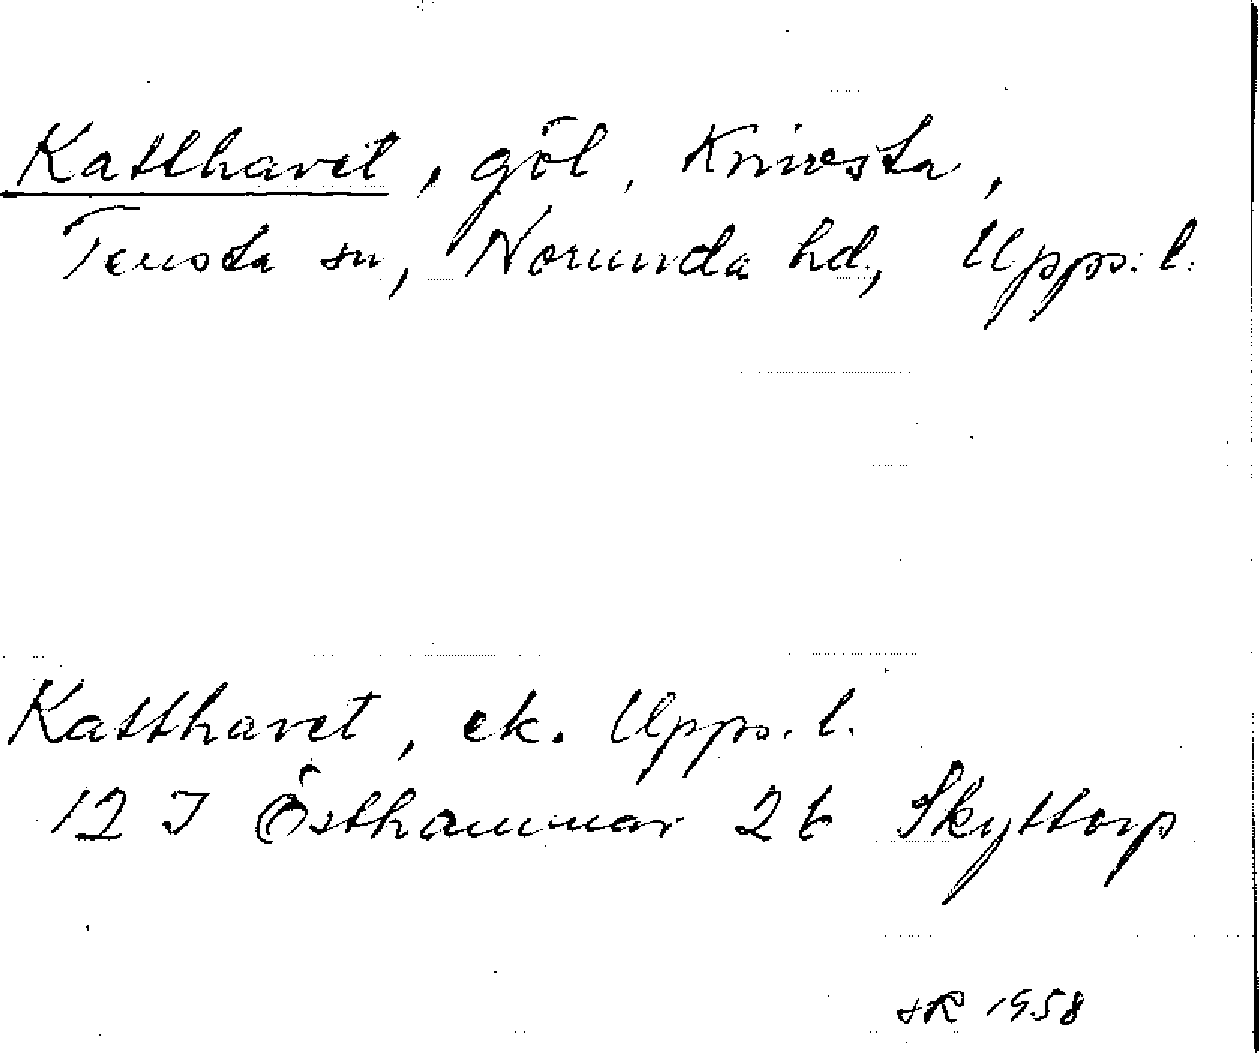 Katthavet, göl, Knivsta,
Tensta sn, Norunda hd, Upps. l.
Katthavet, ek. Upps. l.
12 I Östhammar 2 b Skyttorp
SR 1958